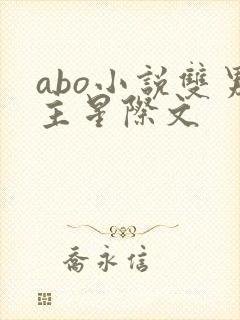 abo小說雙男
主星際文
喬永信